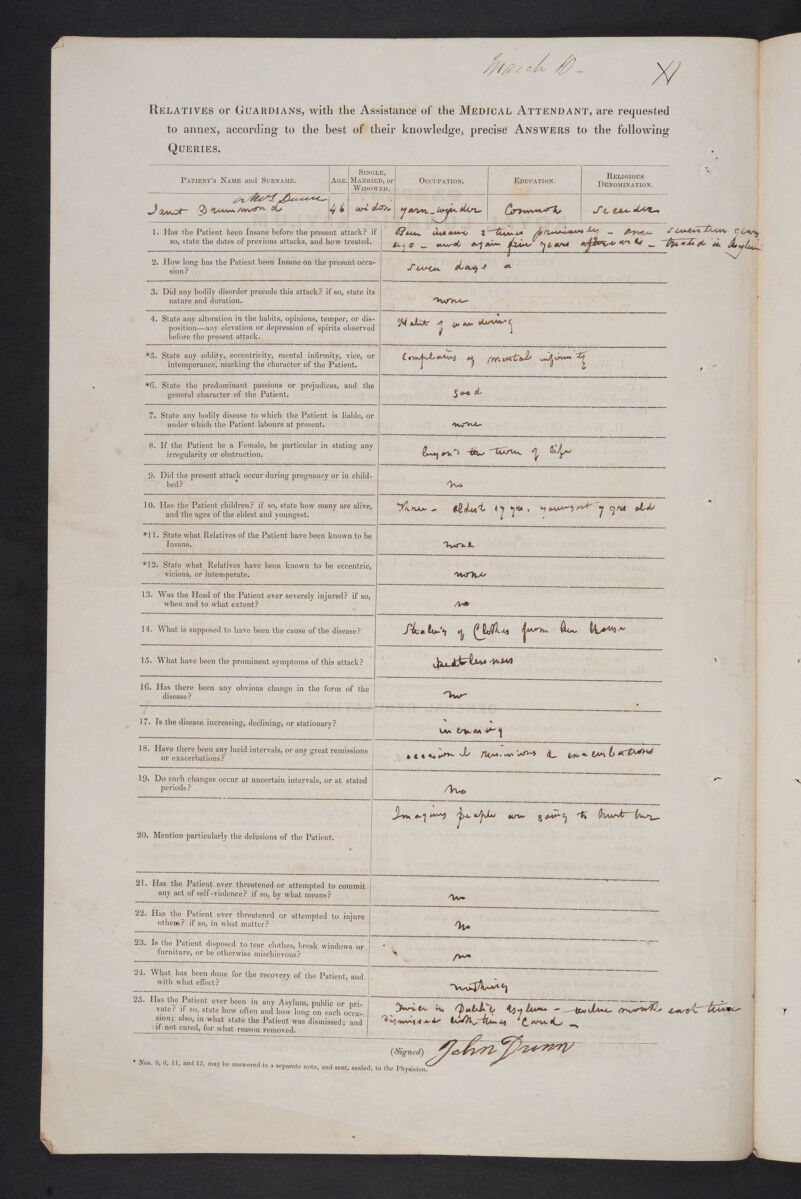 March 10 -
RELATIVES or GUARDIANS, with the Assistance of the MEDICAL ATTENDANT, are requested
to annex, according to the best of their knowledge, precise ANSWERS to the following
QUERIES.
PATIENT'S NAME and SURNAME. AGE. SINGLE, MARRIED, or WIDOWED. OCCUPATION. EDUCATION. RELIGIOUS DENOMINATION.
or Mrs Dunn
Janet Drummond 46 widow yarn-winder Common Seceder
1. Has the Patient been Insane before the present attack? if
so, state the dates of previous attacks, and how treated.
Been insane 2 times previously - once seventeen years
ago - and again four years afterwards - treated in Asylum
2. How long has the Patient been Insane on the present occa-
sion?
Seven days
3. Did any bodily disorder precede this attack? if so, state its
nature and duration.
none
4. State any alteration in the habits, opinions, temper, or dis-
position—any elevation or depression of spirits observed
before the present attack.
Habit of wandering
*5. State any oddity, eccentricity, mental infirmity, vice, or
intemperance, marking the character of the Patient.
Complains of mental infirmity
*6. State the predominant passions or prejudices, and the
general character of the Patient.
good
7. State any bodily disease to which the Patient is liable, or
under which the Patient labours at present.
none
8. If the Patient be a Female, be particular in stating any
irregularity or obstruction.
beyond the turn of life
9. Did the present attack occur during pregnancy or in child-
bed?
no
10. Has the Patient children? if so, state how many are alive,
and the ages of the eldest and youngest.
Three - Eldest 17 yrs, youngest 7 yrs old
*11. State what Relatives of the Patient have been known to be
Insane.
none
*12. State what Relatives have been known to be eccentric,
vicious, or intemperate.
none
13. Was the Head of the Patient ever severely injured? if so,
when and to what extent?
no
14. What is supposed to have been the cause of the disease?
Stealing of Clothes from her house
15. What have been the prominent symptoms of this attack?
restlessness
16. Has there been any obvious change in the form of the
disease?
no
17. Is the disease increasing, declining, or stationary?
increasing
18. Have there been any lucid intervals, or any great remissions
or exacerbations?
occasional remissions & exacerbations
19. Do such changes occur at uncertain intervals, or at stated
periods?
No
20. Mention particularly the delusions of the Patient.
Imagines people are going to hurt her
21. Has the Patient ever threatened or attempted to commit
any act of self-violence? if so, by what means?
no
22. Has the Patient ever threatened or attempted to injure
others? if so, in what matter?
No
23. Is the Patient disposed to tear clothes, break windows or
furniture, or be otherwise mischievous?
no
24. What has been done for the recovery of the Patient, and
with what effect?
nothing
25. Has the Patient ever been in any Asylum, public or pri-
vate? if so, state how often and how long on each occa-
sion; also, in what state the Patient was dismissed; and
if not cured, for what reason removed.
Twice in Public Asylum - twelve months each time
dismissed both times Cured -
(Signed) John Dunn
* Nos. 5, 6, 11, and 12, may be answered in a separate note, and sent, sealed, to the Physician.